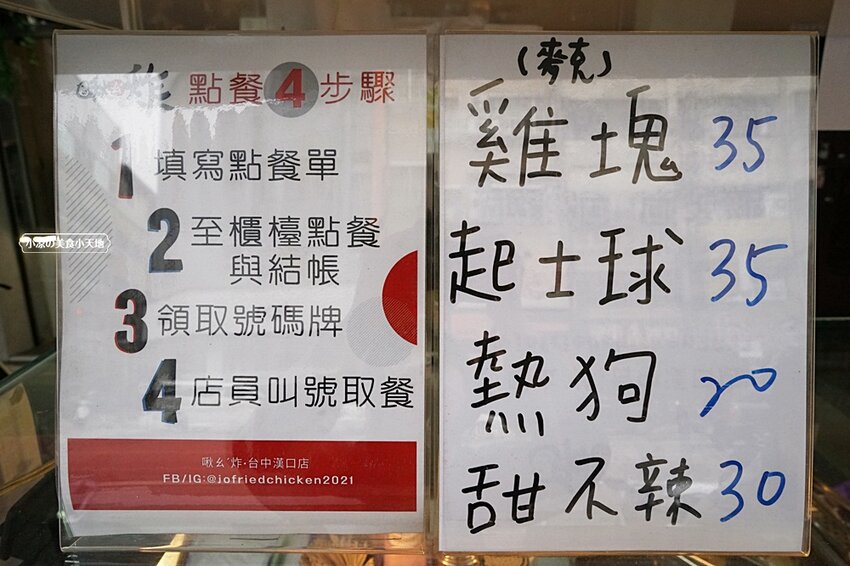 炸 點餐4步驟
1 填寫點餐單
2 至櫃檯點餐
與結帳
3 領取號碼牌
4 店員叫號取餐
啾ㄠˊ炸·台中漢口店
FB/IG:@jofriedchicken2021
(麥克)
雞塊 35
起士球 35
熱狗 20
甜不辣 30
小涼の美食小天地